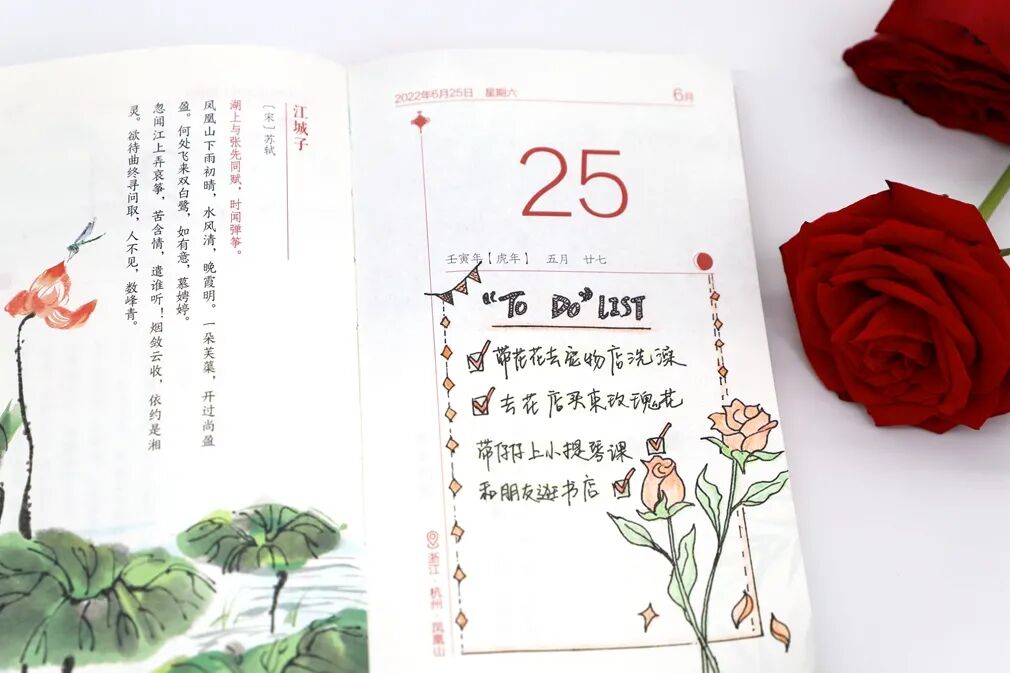 江城子
〔宋〕苏轼
湖上与张先同赋，时闻弹筝。
凤凰山下雨初晴，水风清，晚霞明。一朵芙蕖，开过尚盈
盈。何处飞来双白鹭，如有意，慕娉婷。
忽闻江上弄哀筝，苦含情，遣谁听！烟敛云收，依约是湘
灵。欲待曲终寻问取，人不见，数峰青。
2022年6月25日 星期六
6月
25
壬寅年【虎年】 五月 廿七
“TO DO” LIST
带花花去宠物店洗澡
去花店买束玫瑰花
带仔仔上小提琴课
和朋友逛书店
浙江·杭州·凤凰山